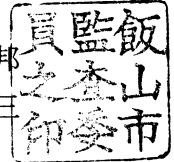 飯山市
監査委
員之印
邦三